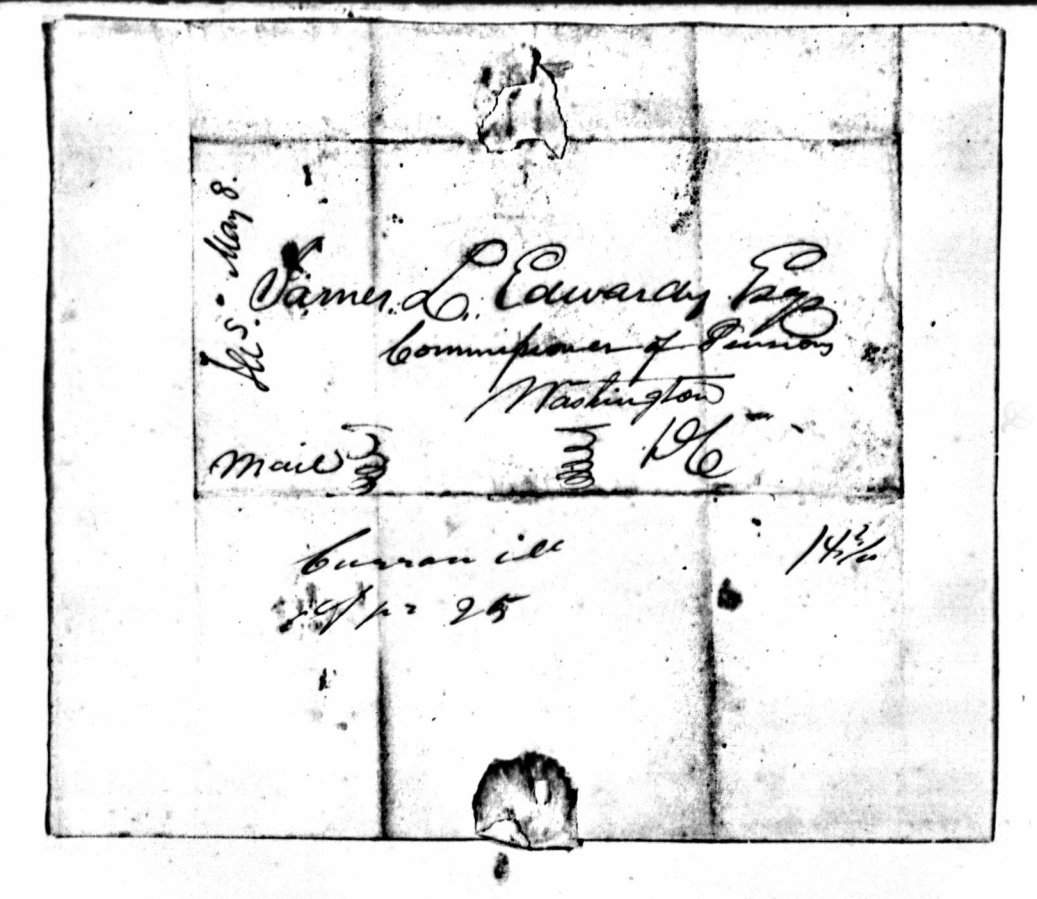 May 8.
James. L. Edwards Esqr
Commissioner of Pensions
Washington
DC
Mail
Curran ill
Apr 25